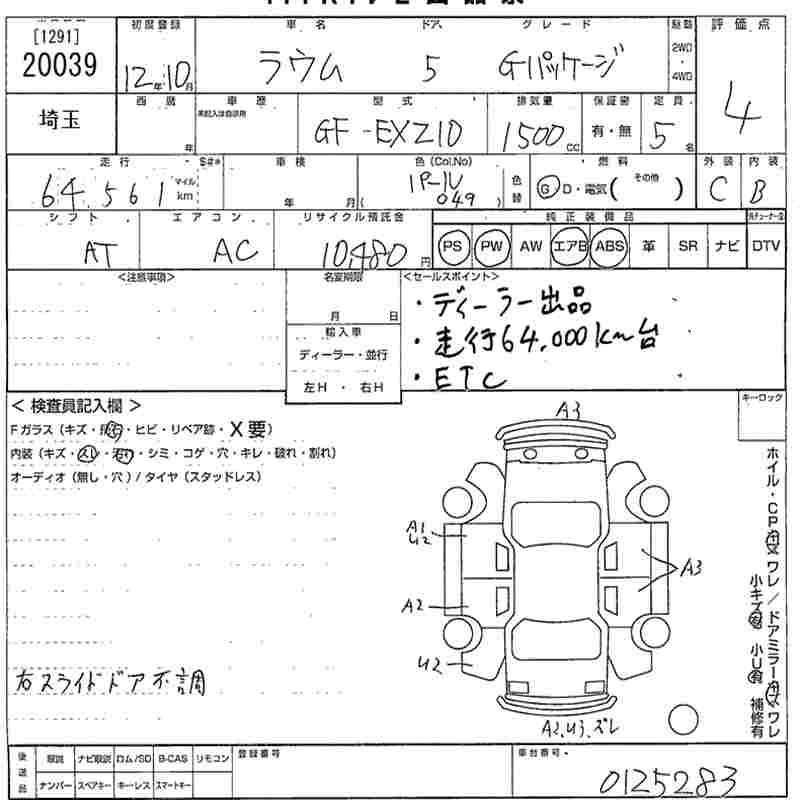 [1291]
20039
初度登録 車名 ドア グレード 駆動 評価点
12年10月 ラウム 5 Gパッケージ 2WD・4WD 4
埼玉
西暦 車歴 型式 排気量 保証書 定員
年 未記入は自家用 GF-EXZ10 1500cc 有・無 5名
走行 S#* 車検 色(Col.No) 燃料 外装 内装
64,561 マイル km 年 月 (049) 色替 G D・電気(その他) C B
シフト エアコン リサイクル預託金 純正装備品
AT AC 10,480円 PS PW AW エアB ABS 革 SR ナビ DTV
<注意事項> 名変期限 <セールスポイント>
月 日
輸入車
ディーラー・並行
左H・右H
・ディーラー出品
・走行64,000km台
・ETC
<検査員記入欄> キーロック
Fガラス(キズ・飛石・ヒビ・リペア跡・X要)
内装(キズ・スレ・汚れ・シミ・コゲ・穴・キレ・破れ・割れ)
オーディオ(無し・穴)/タイヤ(スタッドレス)
A3
A1
U2
A3
A2
U2
A2,U3,ズレ
右スライドドア不調
ホイル・CPキズワレ/ドアミラーキズワレ
小キズ有 小U有 補修有
後送品 取説 ナビ取説 ロム/SD B-CAS リモコン 登録番号 車台番号
ナンバー スペアキー キーレス スマートキー 0125283